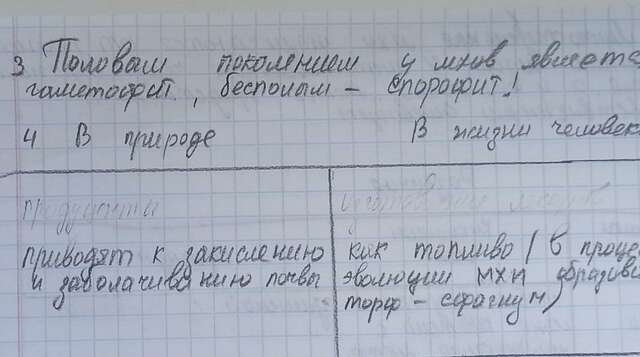 3 Половым поколением у мхов являетс
гаметофит, бесполым - спорофит!
4 В природе В жизни человек
продуценты
приводят к закислению
и заболачиванию почвы
как топливо / в проце
эволюции мхи образови
торф - сфагнум)